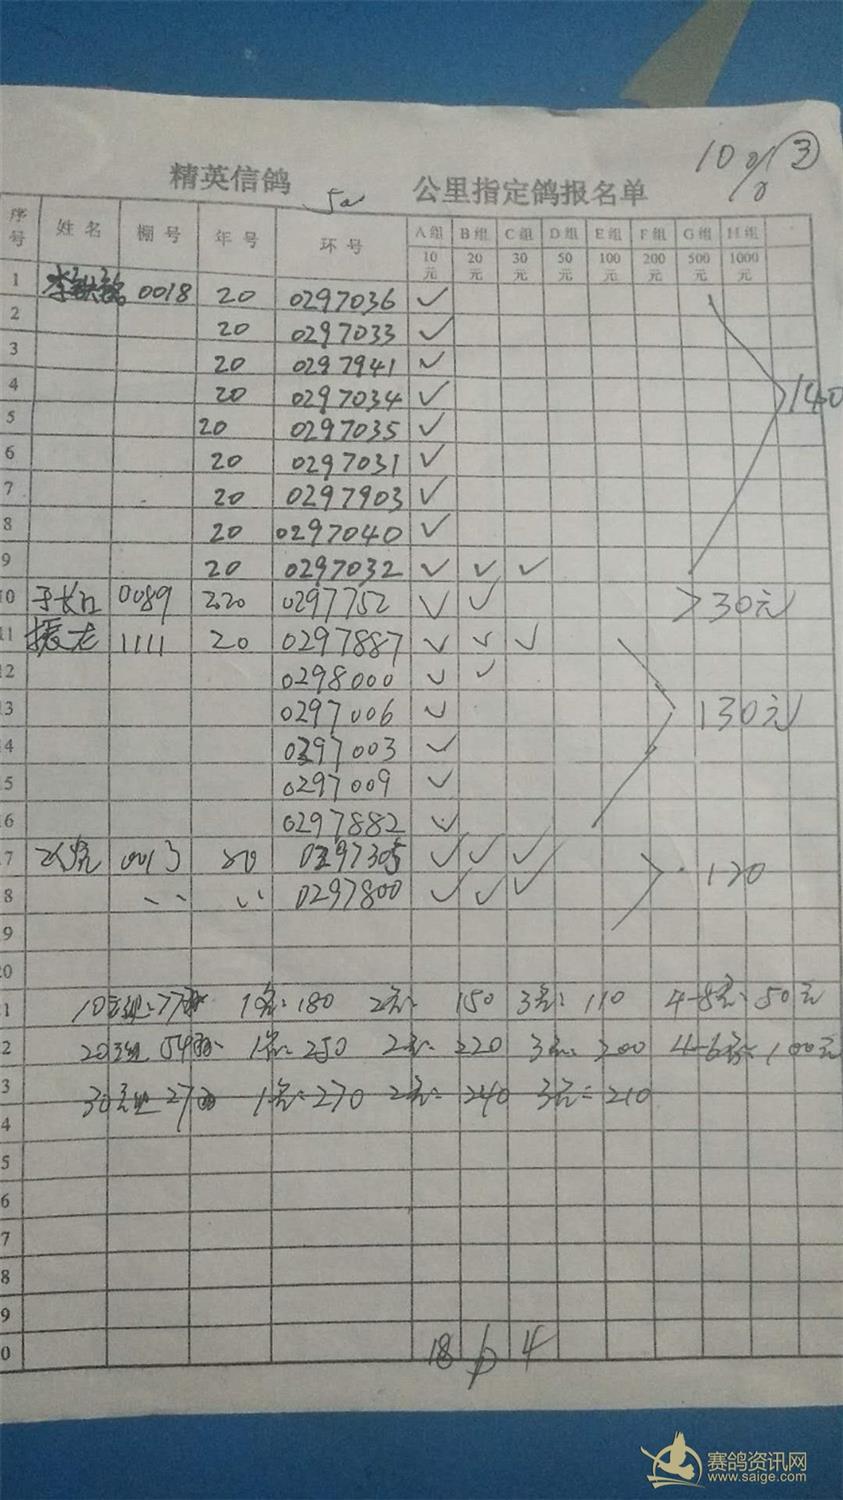 10 ③
精英信鸽 公里指定鸽报名单
序号 姓名 棚号 年号 环号 A组 B组 C组 D组 E组 F组 G组 H组
10元 20元 30元 50元 100元 200元 500元 1000元
1 李 0018 20 0297036 ✓
2 20 0297033 ✓
3 20 0297941 ✓
4 20 0297034 ✓ 140
5 20 0297035 ✓
6 20 0297031 ✓
7 20 0297903 ✓
8 20 0297040 ✓
9 20 0297032 ✓ ✓ ✓
10 于长江 0089 220 0297752 ✓ ✓ >30元
11 振龙 1111 20 0297887 ✓ ✓ ✓
12 0298000 ✓ ✓
13 0297006 ✓ 130元
14 0297003 ✓
15 0297009 ✓
16 0297882 ✓
7 0013 20 0297305 ✓ ✓ ✓ 120
8 0297800 ✓ ✓ ✓
9
20
1 10元组:77羽 1名:180 2名: 150 3名:110 4-8名:50元
2 20元组 54羽 1名:250 2名:220 3名:200 4-6名:100元
3 30元组 27羽 1名:270 2名:240 3名=210
4
5
6
7
8
9
0 18 6 4
赛鸽资讯网
www.saige.com